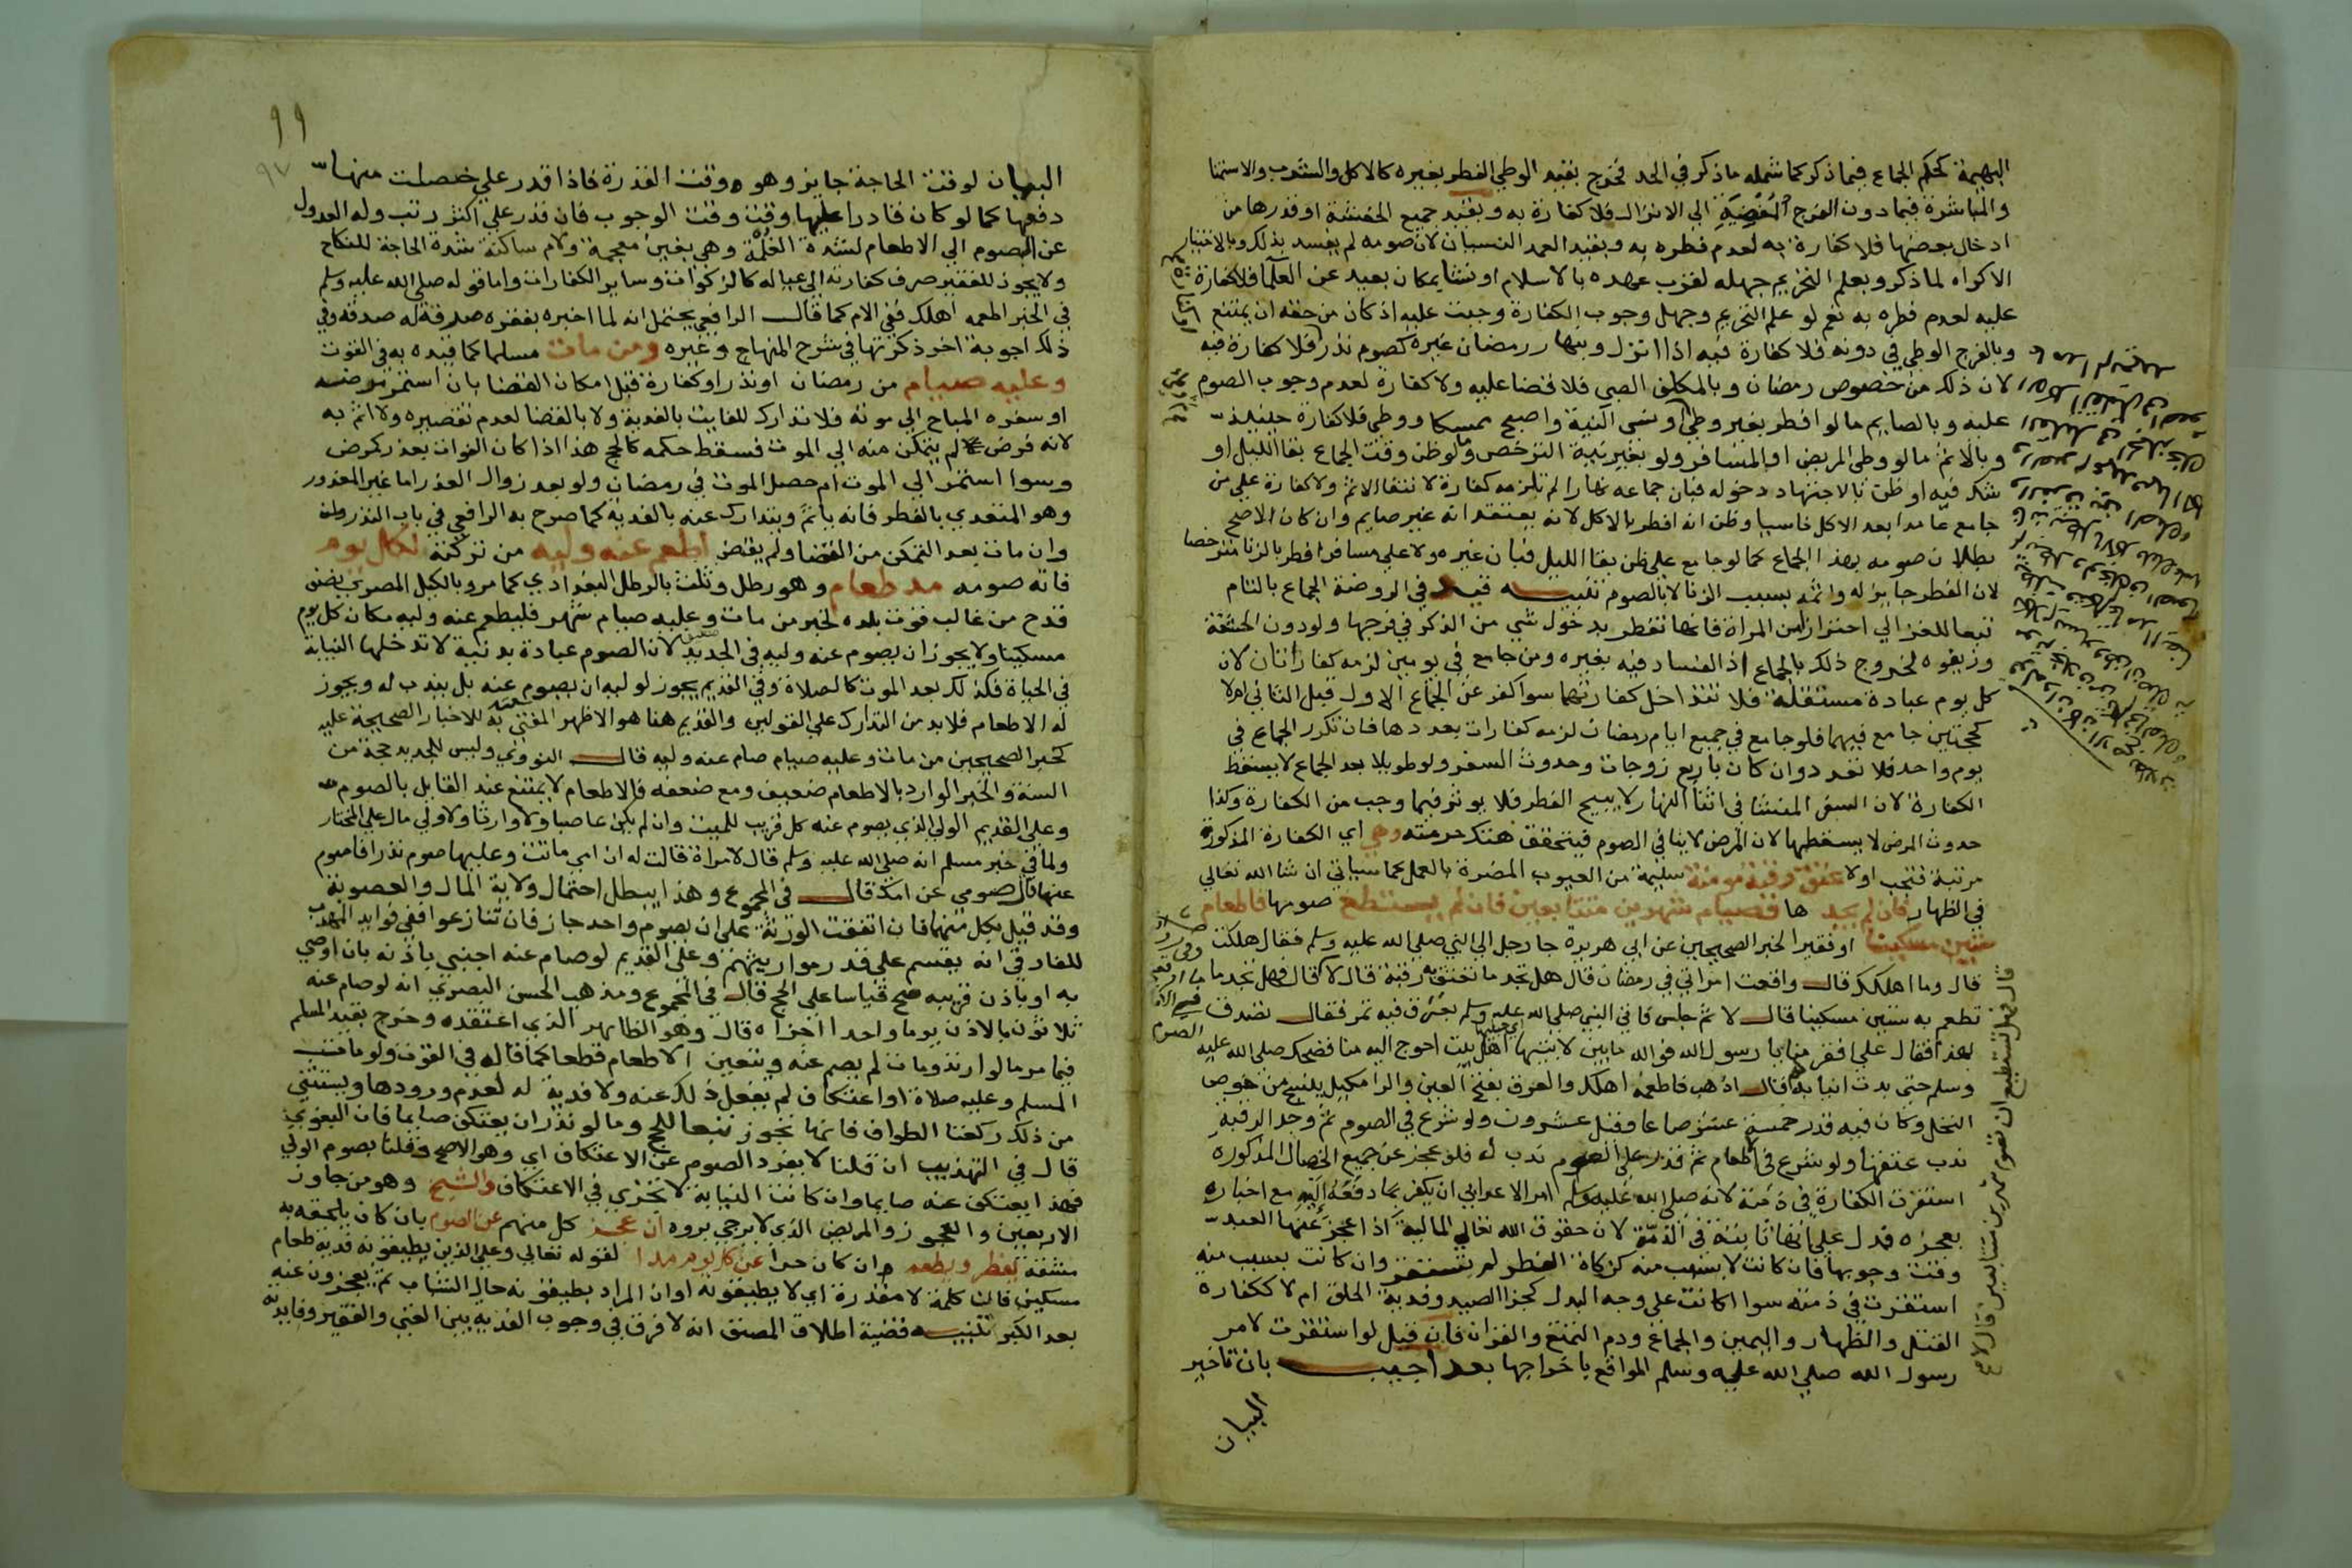 البهيمة كحكم الجماع فيما ذكر كما شمله ما ذكر في الحد فخرج بقيد الوطي الفطر بغيره كالاكل والشرب والاستمنا
والمباشرة فيما دون الفرج المفضية الي الانزال فلا كفارة به وبقيد جميع الحشفة او قدرها من
ادخال بعضها فلا كفارة به لعدم فطره به وبقيد العمد النسيان لان صومه لم يفسد بذلك وبالاختيار
الاكراه لما ذكر وبعلم التحريم جهله لقرب عهده بالاسلام او نشا بمكان بعيد عن العلما فلا كفارة
عليه لعدم فطره به نعم لو علم التحريم وجهل وجوب الكفارة وجبت عليه اذ كان من حقه ان يمتنع
وبالفرج الوطي في دونه فلا كفارة فيه اذا انزل وبنهار رمضان غيره كصوم نذر فلا كفارة فيه
لان ذلك من خصوص رمضان وبالمكلف الصبي فلا قضا عليه ولا كفارة لعدم وجوب الصوم
عليه وبالصايم ما لو افطر بغير وطي او نسي النية واصبح ممسكا ووطي فلا كفارة حينيذ
وبالاثم ما لو وطي المريض او المسافر ولو بغير نية الترخص وما لو ظن وقت الجماع بقا الليل او
شك فيه او ظن بالاجتهاد دخوله فبان جماعه نهارا لم تلزمه كفارة لانتفا الاثم ولا كفارة علي من
جامع عامدا بعد الاكل ناسيا وظن انه افطر بالاكل لانه يعتقد انه غير صايم وان كان الاصح
بطلان صومه بهذا الجماع كما لو جامع علي ظن بقا الليل فبان غيره ولا علي مسافر افطر بالزنا مترخصا
لان الفطر جايز له واثمه بسبب الزنا لا بالصوم تنبيه قيد في الروضة الجماع بالتام
تبعا للغزالي احترازا من المراة فانها تفطر بدخول شي من الذكر في فرجها ولو دون الحشفة
وزيفوه لخروج ذلك بالجماع اذ الفساد فيه بغيره ومن جامع في يومين لزمه كفارتان لان
كل يوم عبادة مستقلة فلا تتداخل كفارتهما سوا كفر عن الجماع الاول قبل الثاني ام لا
كحجتين جامع فيهما فلو جامع في جميع ايام رمضان لزمه كفارات بعددها فان تكرر الجماع في
يوم واحد فلا تعدد وان كان باربع زوجات وحدوث السفر ولو طويلا بعد الجماع لا يسقط
الكفارة لان السفر المنشا في اثنا النهار لا يبيح الفطر فلا يوثر فيما وجب من الكفارة وكذا
حدوث المرض لا يسقطها لان المرض لا ينافي الصوم فيتحقق هتك حرمته وهي اي الكفارة المذكورة
مرتبة فتجب اولا عتق رقبة مومنة سليمة من العيوب المضرة بالعمل كما سياتي ان شا الله تعالي
في الظهار فان لم يجد ها فصيام شهرين متتابعين فان لم يستطع صومها فاطعام
ستين مسكينا او فقيرا لخبر الصحيحين عن ابي هريرة جا رجل الي النبي صلي الله عليه وسلم فقال هلكت
قال وما اهلكك قال واقعت امراتي في رمضان قال هل تجد ما تعتق به رقبة قال لا قال فهل تجد ما
تطعم به ستين مسكينا قال لا ثم جلس فاتي النبي صلي الله عليه وسلم بعرق فيه تمر فقال تصدق
بهذا فقال علي افقر منا يا رسول الله فوالله ما بين لابتيها اهل بيت احوج اليه منا فضحك صلي الله عليه
وسلم حتي بدت انيابه قال اذهب فاطعمه اهلك والعرق بفتح العين والرا مكيل ينسج من خوص
النخل وكان فيه قدر خمسة عشر صاعا وقيل عشرون ولو شرع في الصوم ثم وجد الرقبة
ندب عتقها ولو شرع في الاطعام ثم قدر علي الصوم ندب له فلو عجز عن جميع الخصال المذكورة
استقرت الكفارة في ذمته لانه صلي الله عليه وسلم امر الاعرابي ان يكفر بما دفعه اليه مع اخباره
بعجزه فدل علي انها ثابتة في الذمة لان حقوق الله تعالي المالية اذا عجز عنها العبد
وقت وجوبها فان كانت لا بسبب منه كزكاة الفطر لم تستقر وان كانت بسبب منه
استقرت في ذمته سوا اكانت علي وجه البدل كجزا الصيد وفدية الحلق ام لا ككفارة
القتل والظهار واليمين والجماع ودم التمتع والقران فان قيل لو استقرت لامر
رسول الله صلي الله عليه وسلم المواقع باخراجها بعد اجيب بان تاخير
البيان
قال فهل تستطيع ان تصوم شهرين متتابعين قال لا
٩٩
٩٧
البيان لوقت الحاجة جايز وهو وقت القدرة فاذا قدر علي خصلة منها
فعلها كما لو كان قادرا عليها وقت الوجوب فان قدر علي اكثر رتب وله العدول
عن الصوم الي الاطعام لشدة الغلمة وهي بغين معجمة ولام ساكنة شدة الحاجة للنكاح
ولا يجوز للفقير صرف كفارته الي عياله كالزكوات وساير الكفارات واما قوله صلي الله عليه وسلم
في الخبر اطعمه اهلك ففي الام كما قال الرافعي يحتمل انه لما اخبره بفقره صرفه له صدقة وفي
ذلك اجوبة اخر ذكرتها في شرح المنهاج وغيره ومن مات مسلما كما قيده به في القوت
وعليه صيام من رمضان او نذر او كفارة قبل امكان القضا بان استمر مرضه
او سفره المباح الي موته فلا تدارك للفايت بالفدية ولا بالقضا لعدم تقصيره ولا اثم به
لانه فرض لم يتمكن منه الي الموت فسقط حكمه كالحج هذا اذا كان الفوات بعذر كمرض
وسوا استمر الي الموت ام حصل الموت في رمضان ولو بعد زوال العذر اما غير المعذور
وهو المتعدي بالفطر فانه ياثم ويتدارك عنه بالفدية كما صرح به الرافعي في باب النذر
وان مات بعد التمكن من القضا ولم يقض اطعم عنه وليه من تركته لكل يوم
فاته صومه مد طعام وهو رطل وثلث بالرطل البغدادي كما مر وبالكيل المصري نصف
قدح من غالب قوت بلده لخبر من مات وعليه صيام شهر فليطعم عنه وليه مكان كل يوم
مسكينا ولا يجوز ان يصوم عنه وليه في الجديد لان الصوم عبادة بدنية لا تدخلها النيابة
في الحياة فكذلك بعد الموت كالصلاة وفي القديم يجوز لوليه ان يصوم عنه بل يندب له ويجوز
له الاطعام فلا بد من التدارك علي القولين والقديم هنا هو الاظهر المفتي به للاخبار الصحيحة عليه
كخبر الصحيحين من مات وعليه صيام صام عنه وليه قال النووي وليس للجديد حجة من
السنة والخبر الوارد بالاطعام ضعيف ومع ضعفه فالاطعام لا يمتنع عند القايل بالصوم
وعلي القديم الولي الذي يصوم عنه كل قريب للميت وان لم يكن عاصبا ولا وارثا ولا ولي مال علي المختار
ولما في خبر مسلم انه صلي الله عليه وسلم قال لامراة قالت له ان امي ماتت وعليها صوم نذر افاصوم
عنها قال صومي عن امك قال في المجموع وهذا يبطل احتمال ولاية المال والعصوبة
وقد قيل بكل منهما فان اتفقت الورثة علي ان يصوم واحد جاز فان تنازعوا ففي فوايد المهذب
للفارقي انه يقسم علي قدر مواريثهم وعلي القديم لو صام عنه اجنبي باذنه بان اوصي
به او باذن قريبه صح قياسا علي الحج قال في المجموع ومذهب الحسن البصري انه لو صام عنه
ثلاثون بالاذن يوما واحدا اجزاه قال وهو الظاهر الذي اعتقده وخرج بقيد المسلم
فيما مر ما لو ارتد ومات لم يصم عنه ويتعين الاطعام قطعا كما قاله في القوت ولو مات
المسلم وعليه صلاة او اعتكاف لم يفعل ذلك عنه ولا فدية له لعدم ورودها ويستثني
من ذلك ركعتا الطواف فانها تجوز تبعا للحج وما لو نذر ان يعتكف صايما فان البغوي
قال في التهذيب ان قلنا لا يفرد الصوم عن الاعتكاف اي وهو الاصح وقلنا يصوم الولي
فهذا يعتكف عنه صايما وان كانت النيابة لا تجزي في الاعتكاف والشيخ وهو من جاوز
الاربعين والعجوز والمريض الذي لا يرجي بروه ان عجز كل منهم عن الصوم بان كان يلحقه به
مشقة يفطر ويطعم ان كان حرا عن كل يوم مدا لقوله تعالي وعلي الذين يطيقونه فدية طعام
مسكين فان كلمة لا مقدرة اي لا يطيقونه او ان المراد يطيقونه حال الشباب ثم يعجزون عنه
بعد الكبر تنبيه قضية اطلاق المصنف انه لا فرق في وجوب الفدية بين الغني والفقير وفايدته